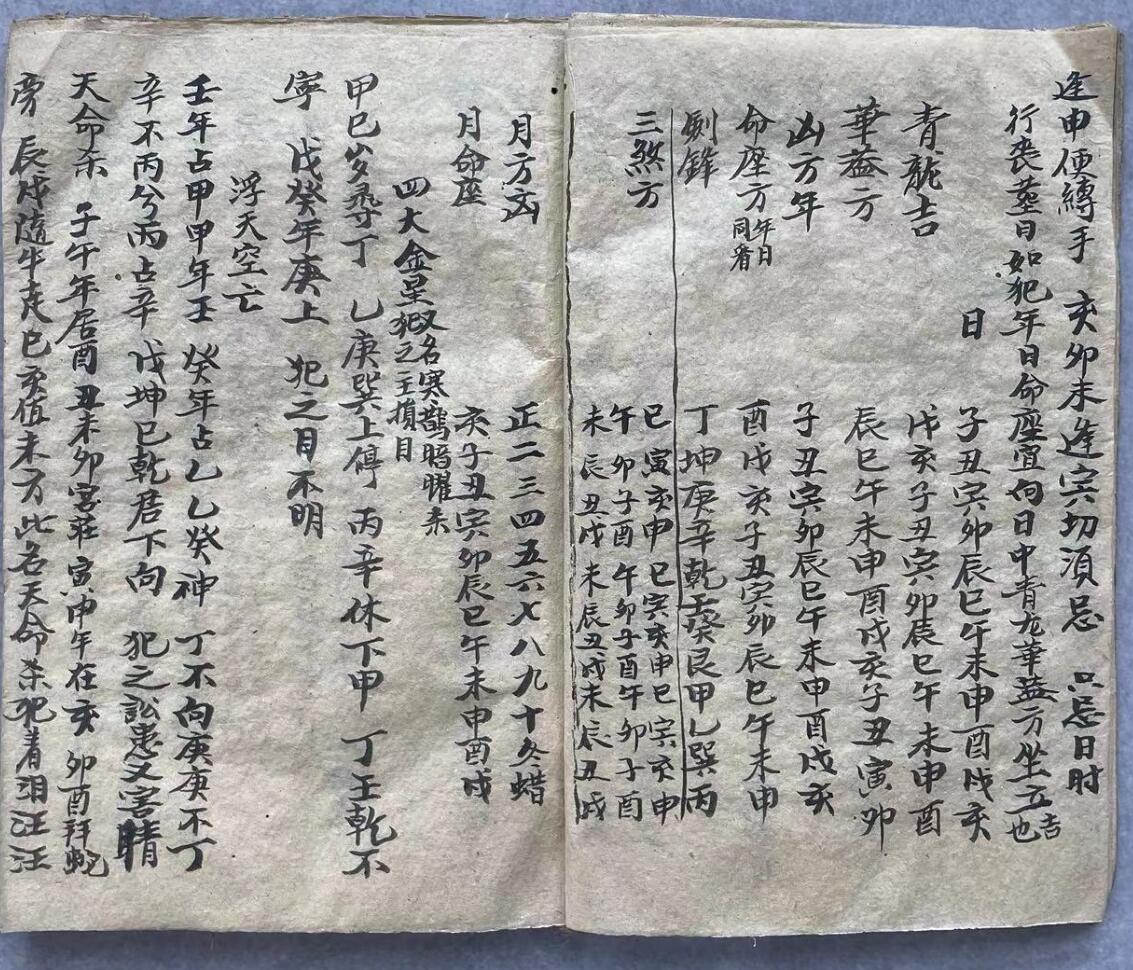 逢申便縛手 亥卯未逢㝙切須忌 只忌日时
行丧塟日如犯年日命座宜向日中青龙華葢方坐立吉也
日 子丑㝙卯辰巳午未申酉戌亥
青龍吉 戌亥子丑㝙卯辰巳午未申酉
華葢方 辰巳午未申酉戌亥子丑寅卯
凶方年 子丑㝙卯辰巳午未申酉戌亥
命座方年日同看 酉戌亥子丑㝙卯辰巳午未申
劍鋒 丁坤庚辛乾壬癸艮甲乙巽丙
三煞方 巳寅亥申巳㝙亥申巳㝙亥申
午卯子酉午卯子酉午卯子酉
未辰丑戌未辰丑戌未辰丑戌
月方凶 正二三四五六七八九十冬蜡
月命座 亥子丑㝙卯辰巳午未申酉戌
四大金星又名寒鵲暗曜杀犯之主損目
甲巳岁尋丁 乙庚巽上停 丙辛休下甲 丁壬乾不
寧 戊癸年庚上 犯之目不明
浮天空亡
壬年占甲甲年壬 癸年占乙乙癸神 丁不向庚庚不丁
辛不丙兮丙占辛 戊坤巳乾君下向 犯之訟患又害睛
天命杀 子午年居酉 丑未卯宮莊 寅申年在亥 卯酉拜蛇
旁 辰戌隨牛走 巳亥值未方 此名天命杀 犯着泪汪汪